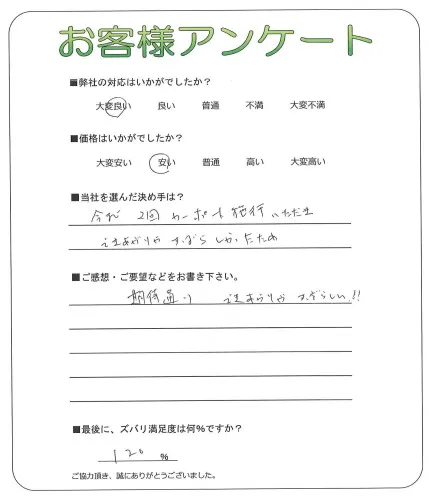 お客様アンケート
■弊社の対応はいかがでしたか？
大変良い 良い 普通 不満 大変不満
■価格はいかがでしたか？
大変安い 安い 普通 高い 大変高い
■当社を選んだ決め手は？
今迄 2回 カーポート施行いただき
出来あがりが すばらしかったため
■ご感想・ご要望などをお書き下さい。
期待通り 出来あがりが すばらしい!!
■最後に、ズバリ満足度は何％ですか？
120 ％
ご協力頂き、誠にありがとうございました。